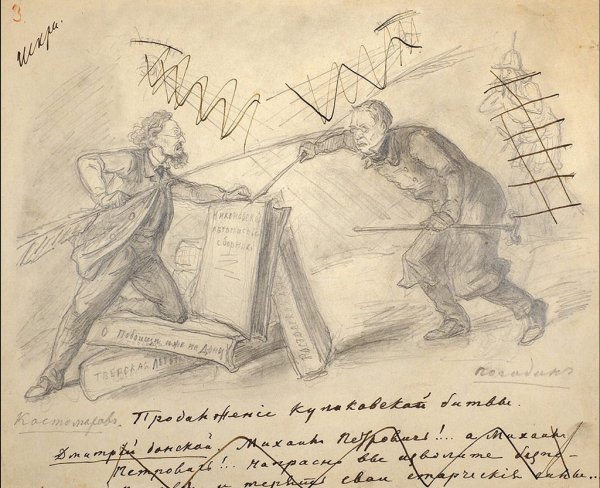 3.
Искра.
НИКОНОВСКІЙ
ЛѢТОПИСНЫЙ
СБОРНИКЪ
О Побоищѣ иже на Дону
ТВЕРСКАЯ
Костомаровъ.
Погодинъ
Продолженіе куликовской битвы.
Дмитрій Донской. Михаилъ Петровичъ!... а Михаилъ
Петровичъ!.. напрасно вы изволите безпо-
и терять свои старческія силы.